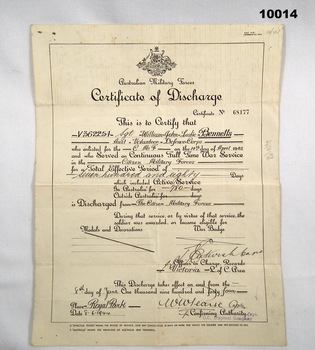 10014
Australian Military Forces
Certificate of Discharge
Certificate No 68177
This is to Certify that
V362251 Sgt William John Leslie Bennetts
Volunteer Defence Corps
who enlisted for the C.M.F. on the 19th day of April 1942
and who Served on Continuous Full Time War Service
in the Citizen Military Forces
for a Total Effective Period of
Seven hundred and eighty Days
which included Active Service
In Australia for 780 days
Outside Australia for days
is Discharged from The Citizen Military Forces
During that service, or by virtue of that service, the
soldier was awarded, or became eligible for
Medals and Decorations War Badge
Officer in Charge, Records
Victoria L of C Area
This Discharge takes effect on and from the
day of June One thousand nine hundred and forty four
Place Royal Park
Date 8-6-1944
Confirming Authority